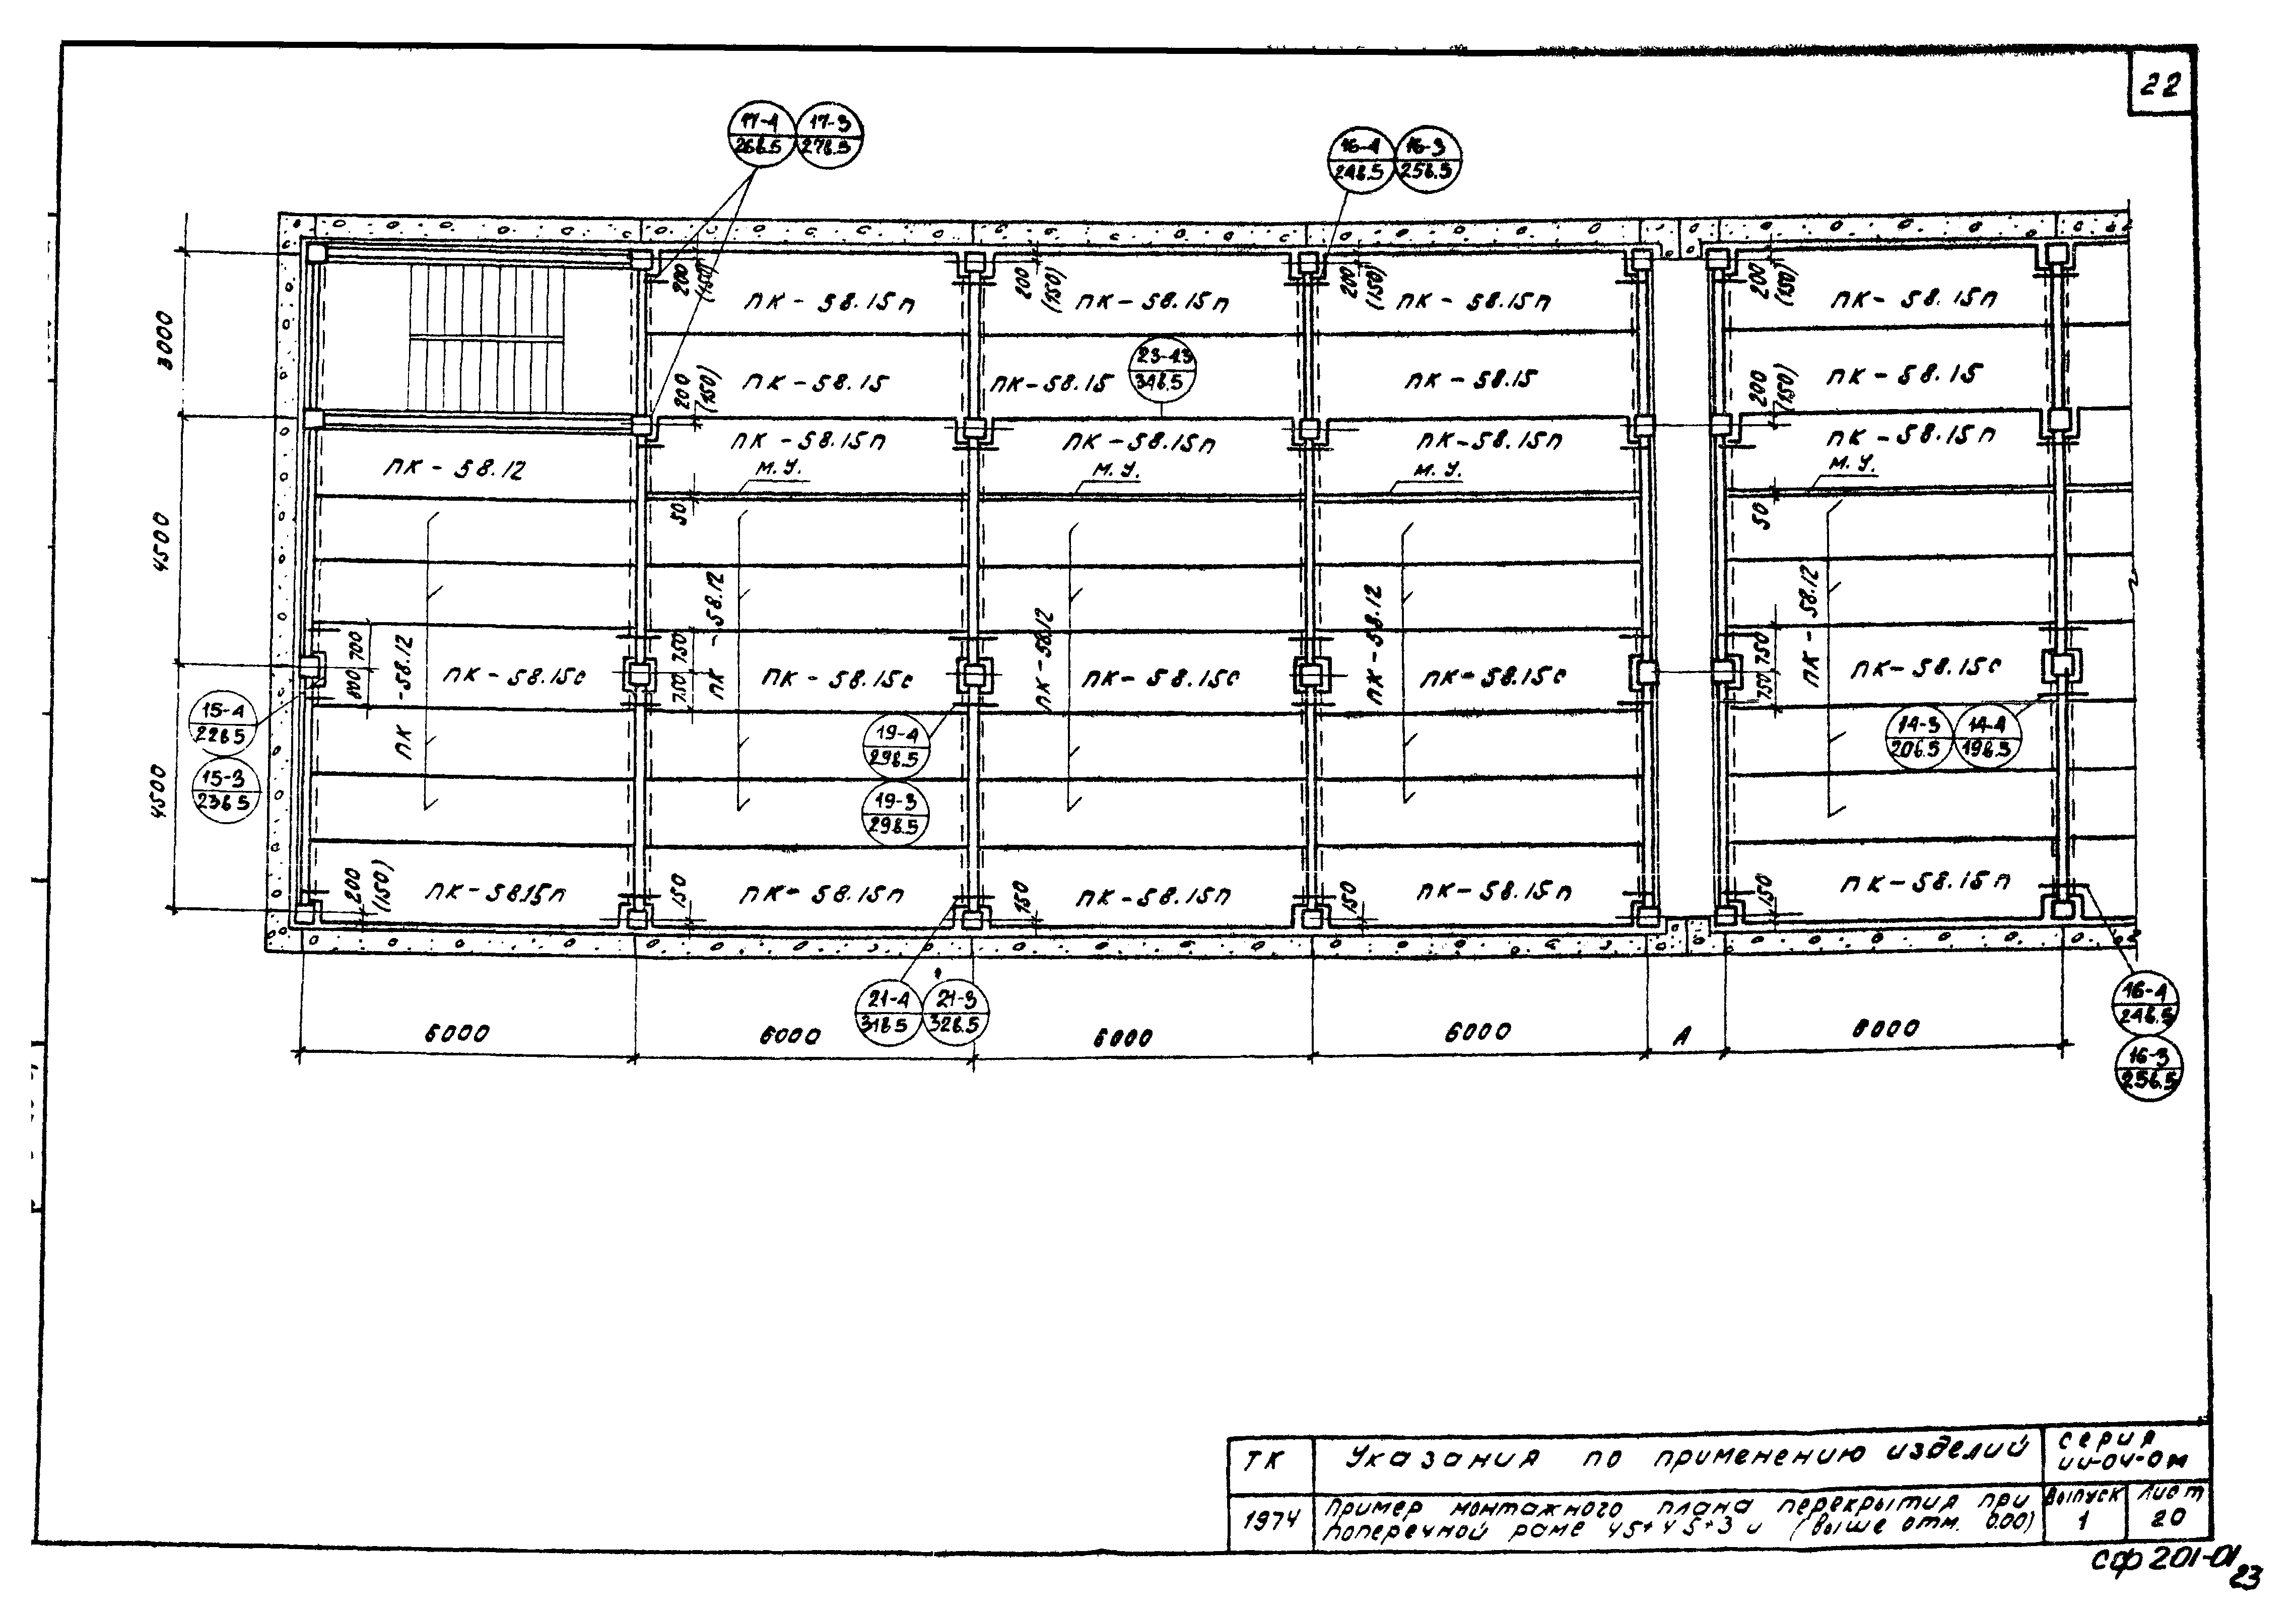 22
17-4 17-3
26в.5 27в.5
16-4 16-3
24в.5 25в.5
3000
4500
4500
200 (150)
200 (150)
200 (150)
200 (150)
ПК-58.15п ПК-58.15п ПК-58.15п ПК-58.15п
23-43
34в.5
ПК-58.15 ПК-58.15 ПК-58.15 ПК-58.15
200 (150)
200 (150)
ПК-58.12 ПК-58.15п ПК-58.15п ПК-58.15п ПК-58.15п
М.У. М.У. М.У. М.У.
50 50
ПК-58.12 ПК-58.12 ПК-58.12 ПК-58.12 ПК-58.12
700 800
750 750
750 750
ПК-58.15с ПК-58.15с ПК-58.15с ПК-58.15с ПК-58.15с
15-4
22в.5
15-3
23в.5
19-4
29в.5
19-3
29в.5
14-3 14-4
20в.5 19в.5
200 (150)
150 150 150 150
ПК-58.15п ПК-58.15п ПК-58.15п ПК-58.15п ПК-58.15п
21-4 21-3
31в.5 32в.5
16-4
24в.5
16-3
25в.5
6000 6000 6000 6000 А 6000
ТК
Указания по применению изделий
серия
ИИ-04-0м
1974
Пример монтажного плана перекрытия при
поперечной раме 4,5+4,5+3 м (выше отм. 0.00)
Выпуск
1
Лист
20
сф 201-01
23